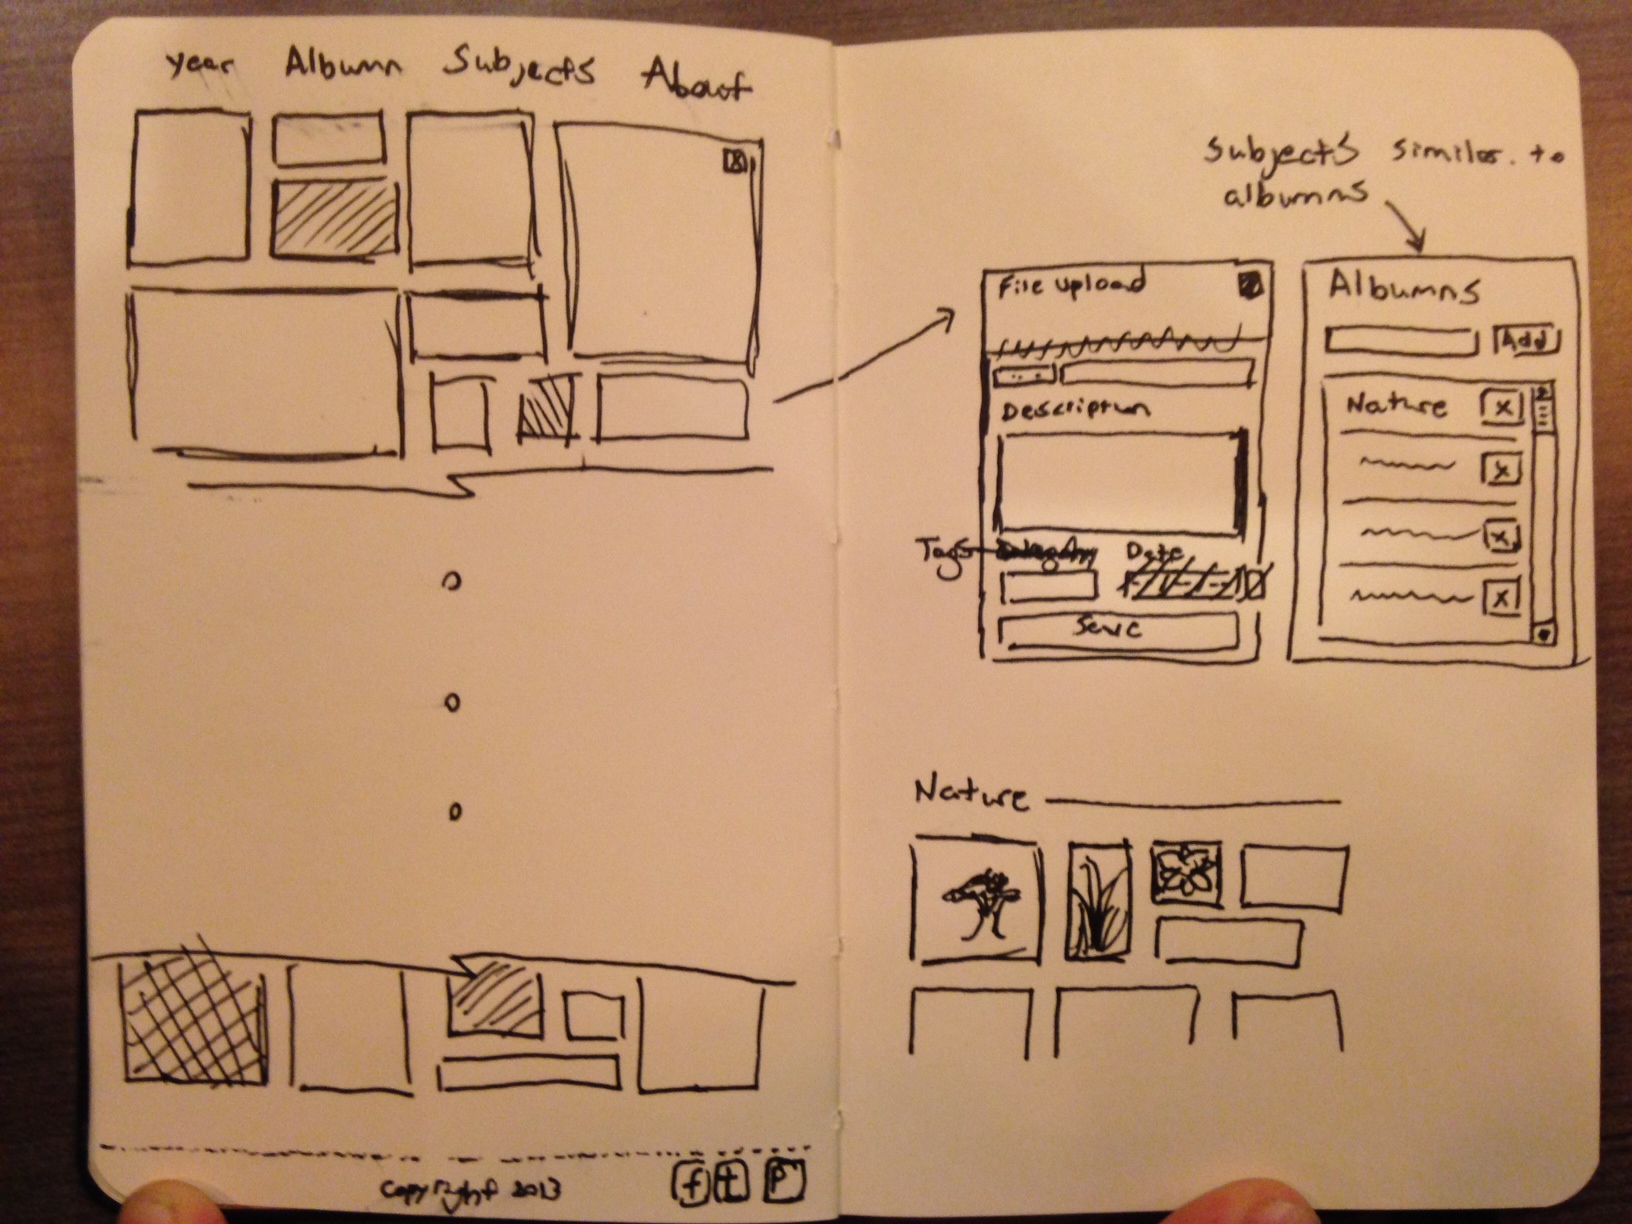 Year Album Subjects About
x
copyright 2013
f t p
Subjects similar to
albums
File upload
...
Description
Tags
Date
Save
Albums
Add
Nature x
x
x
x
Nature